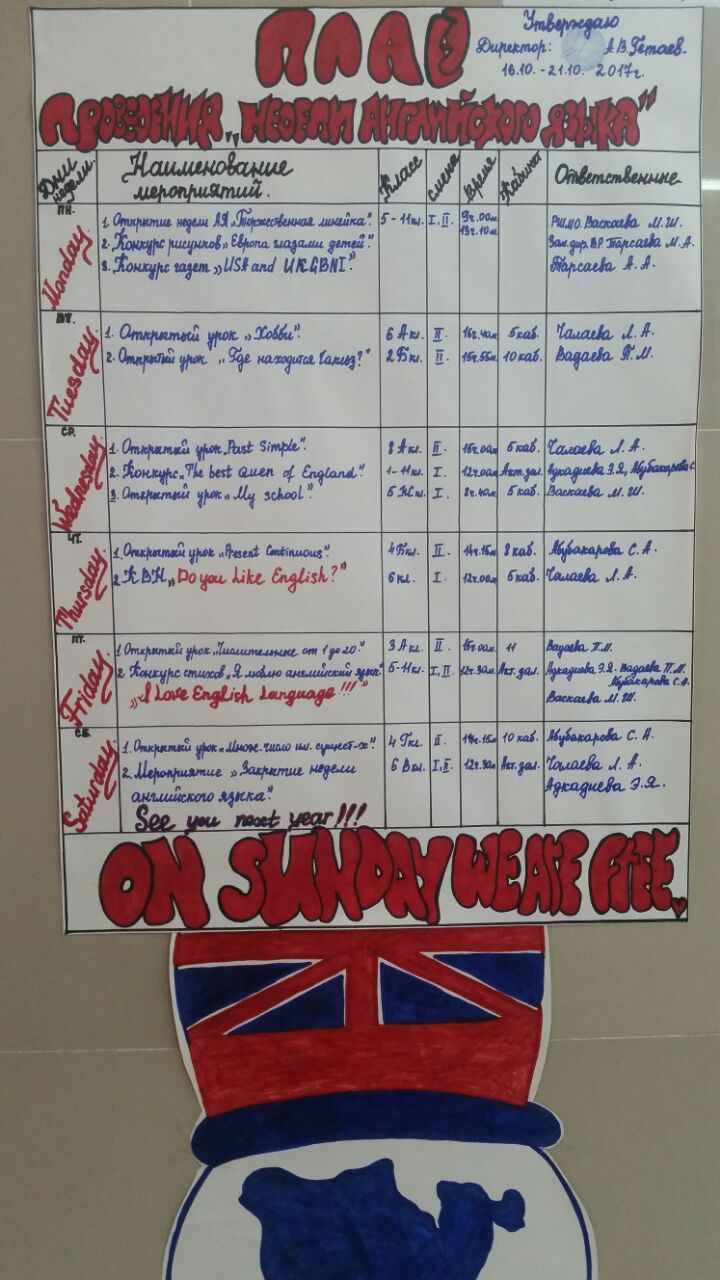 ПЛАН
Утверждаю
Директор: А.В. Гетаев.
16.10. - 21.10. 2017г.
проведения „недели английского языка"
Дни недели.
Наименование мероприятий.
Класс
смена
Время
Кабинет
Ответственные
ПН.
Monday
1. Открытие недели АЯ „Торжественная линейка". 5 - 11 кл. I, II. 9ч.00м 13ч.10м Ршмо. Васкаева М.Ш.
2. Конкурс рисунков „Европа глазами детей". Зам.дир. ВР. Тарсаева М.А.
3. Конкурс газет „USA and UKGBNI". Тарсаева А. А.
ВТ.
Tuesday
1. Открытый урок „Хобби". 6 А кл. II. 16ч.40м 5 каб. Чалаева Л. А.
2. Открытый урок „Где находится 5каб. 2 Б кл. II. 15ч.55м 10 каб. Вадаева П.М.
СР.
Wednesday
1. Открытый урок „Past Simple". 8 А кл. II. 15ч.00м 5 каб. Чалаева Л. А.
2. Конкурс „The best Quen of England". 1-11кл. I. 12ч.00м Акт.зал. Адкадиева Э.Я, Абубакарова С
3. Открытый урок „My school". 5 Ж кл. I. 8ч.40м 5 каб. Васкаева М. Ш.
ЧТ.
Thursday
1. Открытый урок „Present Continuous". 4 Б кл. II. 14ч.15м 8 каб. Абубакарова С. А.
2. КВН „Do you Like English?" 6 кл. I. 12ч.00м 5 каб. Чалаева Л. А.
ПТ.
Friday
1. Открытый урок „Числительные от 1 до 20". 3 А кл. II. 15ч.00м. 11 Вадаева П.М.
2. Конкурс стихов „Я люблю английский язык" 5-11кл. I, II. 12ч.30м Акт. зал. Адкадиева Э.Я. Вадаева П.М. Абубакарова С.А.
„I Love English Language!!!" Васкаева М. Ш.
СБ.
Saturday
1. Открытый урок „Множ. число им. сущест-х". 4 Г кл. II. 14ч.15м 10 каб. Абубакарова С. А.
2. Мероприятие „Закрытие недели 6 В кл. I, II. 12ч.30м Акт. зал. Чалаева Л. А.
английского языка". Адкадиева Э.Я.
See you next year!!!
ON SUNDAY WE ARE FREE